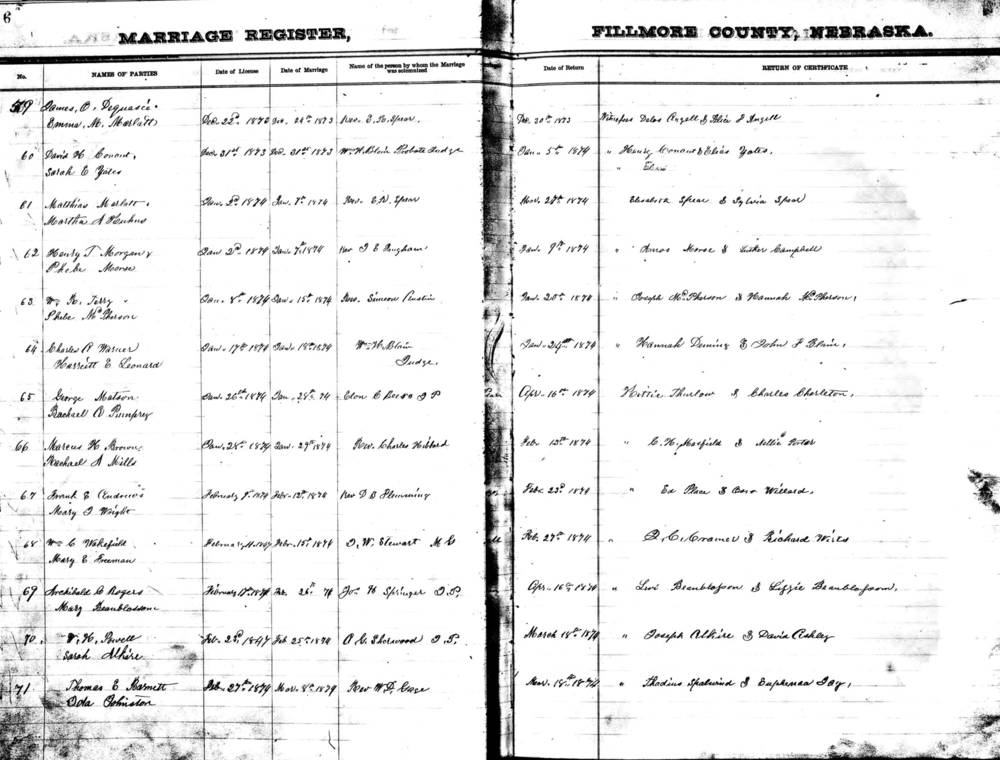 6
MARRIAGE REGISTER, FILLMORE COUNTY, NEBRASKA.
No. NAMES OF PARTIES Date of License Date of Marriage Name of the person by whom the Marriage was solemnized Date of Return RETURN OF CERTIFICATE
59 James, O, Dec. 22d 1873 Dec. 24th 1873 Rev. E. Spear. Dec. 30th 1873 Witnesses Delos Angell & Angell
Emma, M, Marlatt
60 David H Conant, Dec 31st 1873 Dec 31st 1873 W. H. Blair Probate Judge Jan. 5th 1874 " Henry Conant & Elias Yates,
Sarah E Yates "
61 Matthias Marlatt. Jan. 2d 1874 Jan. 1874 Rev. E. Spear Mar. 27th 1874 Elizabeth Spear & Sylvia Spear
Martha A
62 Henry T Morgan & Jan 2d 1874 Jan. 7th 1874 Rev J E Bingham Jan. 9th 1874 " Amos Morse & Luther Campbell
Phebe Morse
63 Wm Terry Jan. 8th 1874 Jan. 15th 1874 Rev. Simeon Austin Jan. 20th 1874 " Joseph McPherson & Hannah McPherson,
Phebe McPherson
64 Charles Warner Jan. 17th 1874 Jan. 18th 1874 Wm H. Blair Jan. 24th 1874 " Hannah Deming & John F Blair,
Harriett E Leonard Judge.
65 George Matson Jan. 26th 1874 Jan. 28th 74 Elon C J P Apr. 16th 1874 Thurlow & Charles Charleton,
Rachael A Pumprey
66 Marcus H. Brown Jan. 28th 1874 Jan. 29th 1874 Rev. Charles Hibbard Feb. 13th 1874 " C. H. & Nellie
Rachael A Mills
67 Frank E Andrews February 9th 1874 Feb. 12th 1874 Rev D B Flemming Feb. 23d 1874 " Ed Place & Willard,
Mary J Wright
68 Wm C Wakefield February Febr. 15th 1874 J. W. Stewart M G Feb. 27th 1874 " D, C, Cramer & Richard
Mary E Freeman
69 Archibald Rogers February 1874 Feb. 26th 74 Jos. H Springer J. P. Apr. 16th 1874 " Levi Beanblossom & Lizzie Beanblossom,
Mary Beanblossom
70 W. H. Powell Feb. 23d 1847 Feb 25th 1874 A G. Sherwood J. P. March 18th 1874 " Joseph Alkire & David Ashley
Sarah Alkire
71 Thomas E Barnett Feb. 27th 1874 Mar. 8th 1874 Rev W. Mar. 18th 1874 "
Ida Johnston